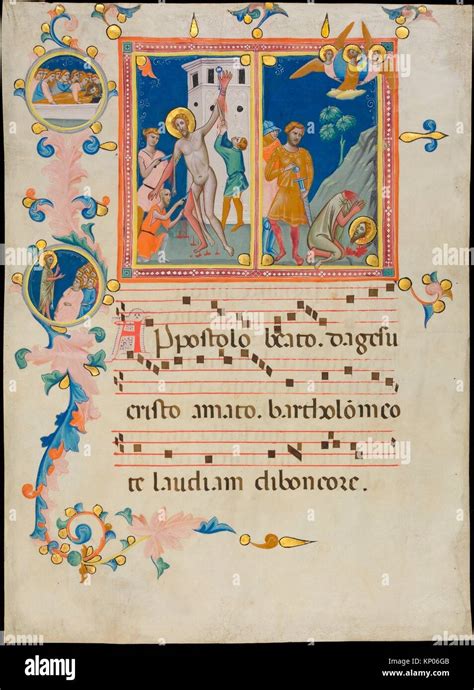 Appostolo beato. dagesu
cristo amato. bartholōmeo
te laudiam diboncore.
alamy stock photo
Image ID: KP06GB
www.alamy.com